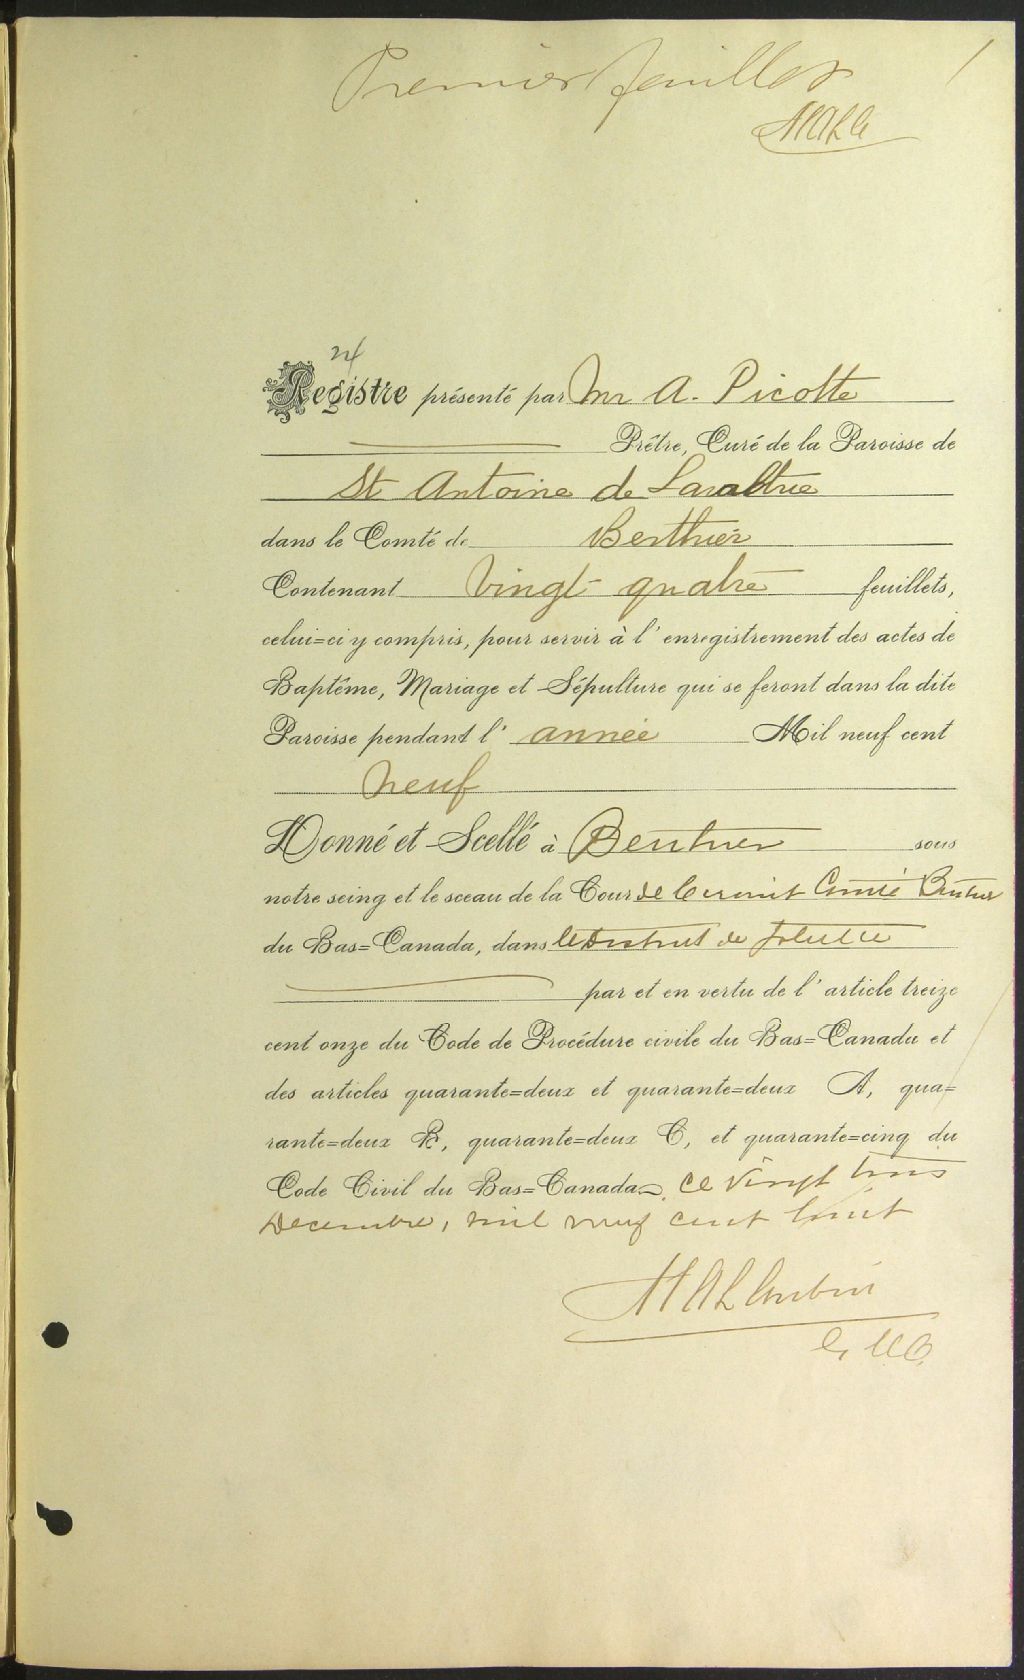 Premier feuillet 1
24
Registre présenté par Mr A. Picotte
Prêtre, Curé de la Paroisse de
St Antoine de Lavaltrie
dans le Comté de Berthier
Contenant Vingt-quatre feuillets,
celui=ci y compris, pour servir à l'enregistrement des actes de
Baptême, Mariage et Sépulture qui se feront dans la dite
Paroisse pendant l'année Mil neuf cent
neuf
Donné et Scellé à Berthier sous
notre seing et le sceau de la Cour de Circuit Comté Berthier
du Bas=Canada, dans le District de Joliette
par et en vertu de l'article treize
cent onze du Code de Procédure civile du Bas=Canada et
des articles quarante=deux et quarante=deux A, qua=
rante=deux B, quarante=deux C, et quarante=cinq du
Code Civil du Bas=Canada, ce vingt trois
Decembre, mil neuf cent huit